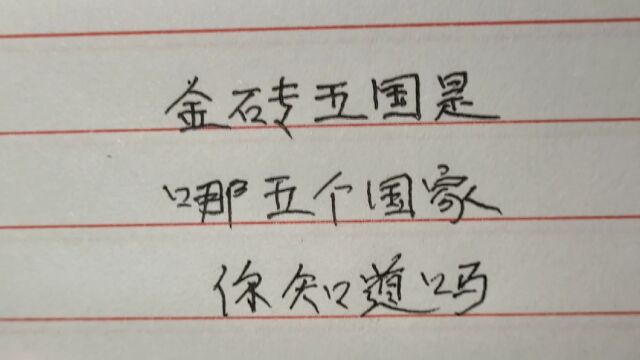 金砖五国是
哪五个国家
你知道吗